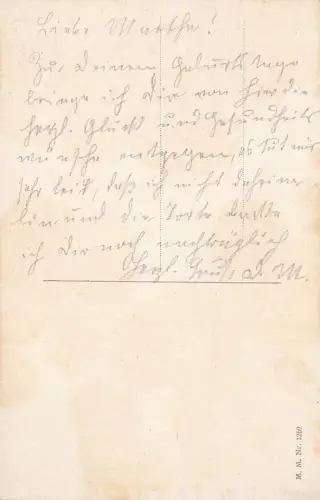 Liebe Martha!
Zu Deinem Geburtstage
bringe ich Dir von hier die
herzl. Glück und Gesundheits
wünsche entgegen, es tut mir
sehr leid, daß ich nicht daheim
bin und die Torte backe
ich Dir noch nachträglich
Herzl. Gruß D. M.
M. M. Nr. 1269